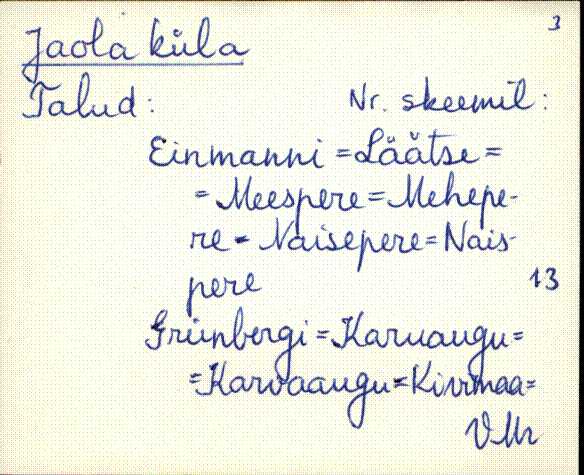 3
Jaola küla
Talud: Nr. skeemil:
Einmanni = Läätse =
= Meespere = Mehepe-
re = Naisepere = Nais-
pere 13
Grünbergi = Karuaugu =
= Karvaaugu = Kivimaa =
VMr